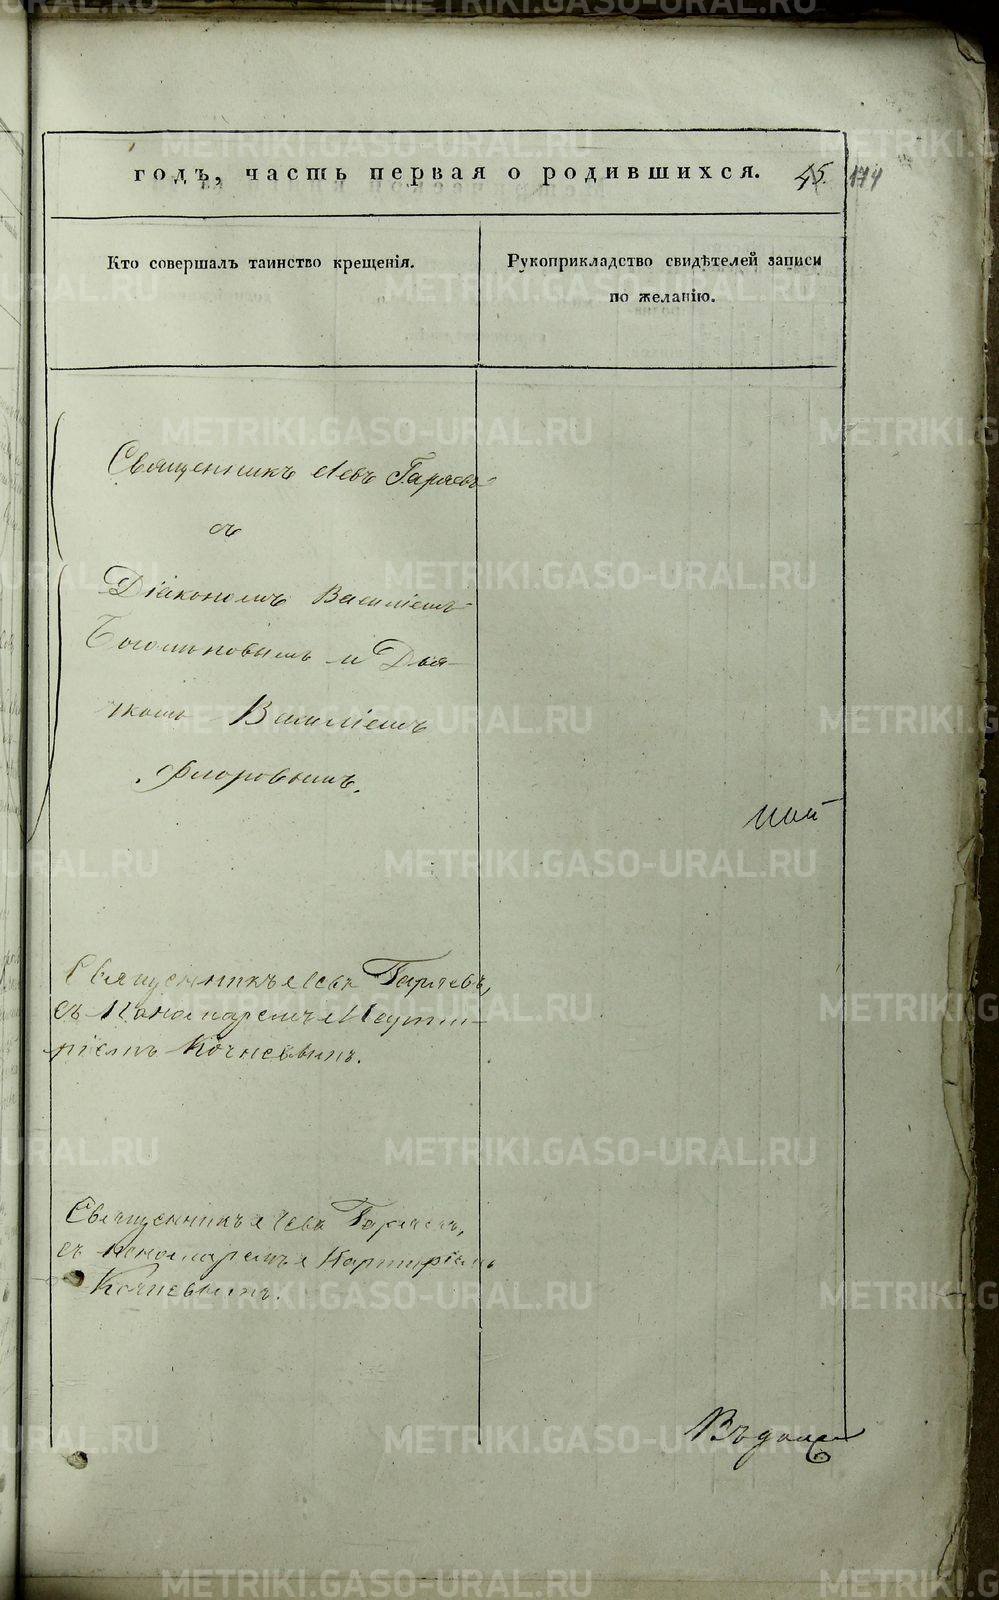 годъ, часть первая о родившихся.
45. 174
Кто совершалъ таинство крещенія.
Рукоприкладство свидѣтелей записи
по желанію.
Священникъ Левъ Гаряевъ
съ
Діакономъ Василіемъ
Богомоловымъ и Дья-
чкомъ Василіемъ
Флоровымъ.
Священникъ Левъ Гаряевъ,
съ Пономаремъ
Кочневымъ.
Священникъ Левъ Гаряевъ,
съ пономаремъ
Кочневымъ.
METRIKI.GASO-URAL.RU